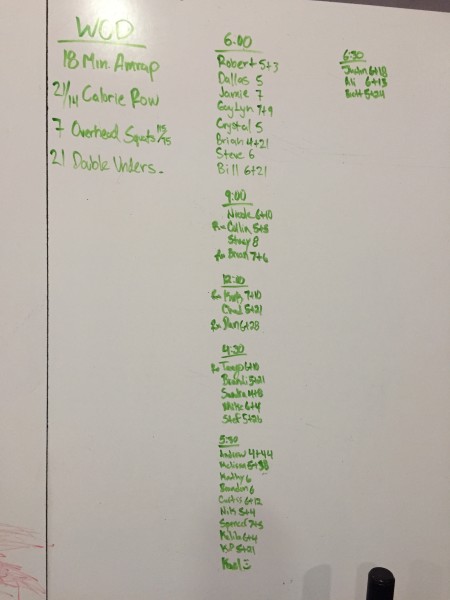 WOD
18 Min. Amrap
21/14 Calorie Row
7 Overhead Squats 115/75
21 Double Unders.
6:00
Robert 5+3
Dallas 5
Jamie 7
Gaylyn 7+9
Crystal 5
Brian 4+21
Steve 6
Bill 6+21
9:00
Nicole 6+10
Rx Collin 5+8
Stacy 8
Rx Brian 7+6
12:00
7+10
Chad 5+21
6+28
4:30
Rx 6+10
Brandi 5+21
Sandra 4+8
Mike 6+4
Stef 5+26
5:30
Andrew 4+44
Melissa 5+38
Kathy 6
Brandon 6
Curtis 6+12
Nik 5+4
Spencer 7+5
6+4
KP 5+21
Karl
6:30
Justin 6+18
Ali 6+13
5+24